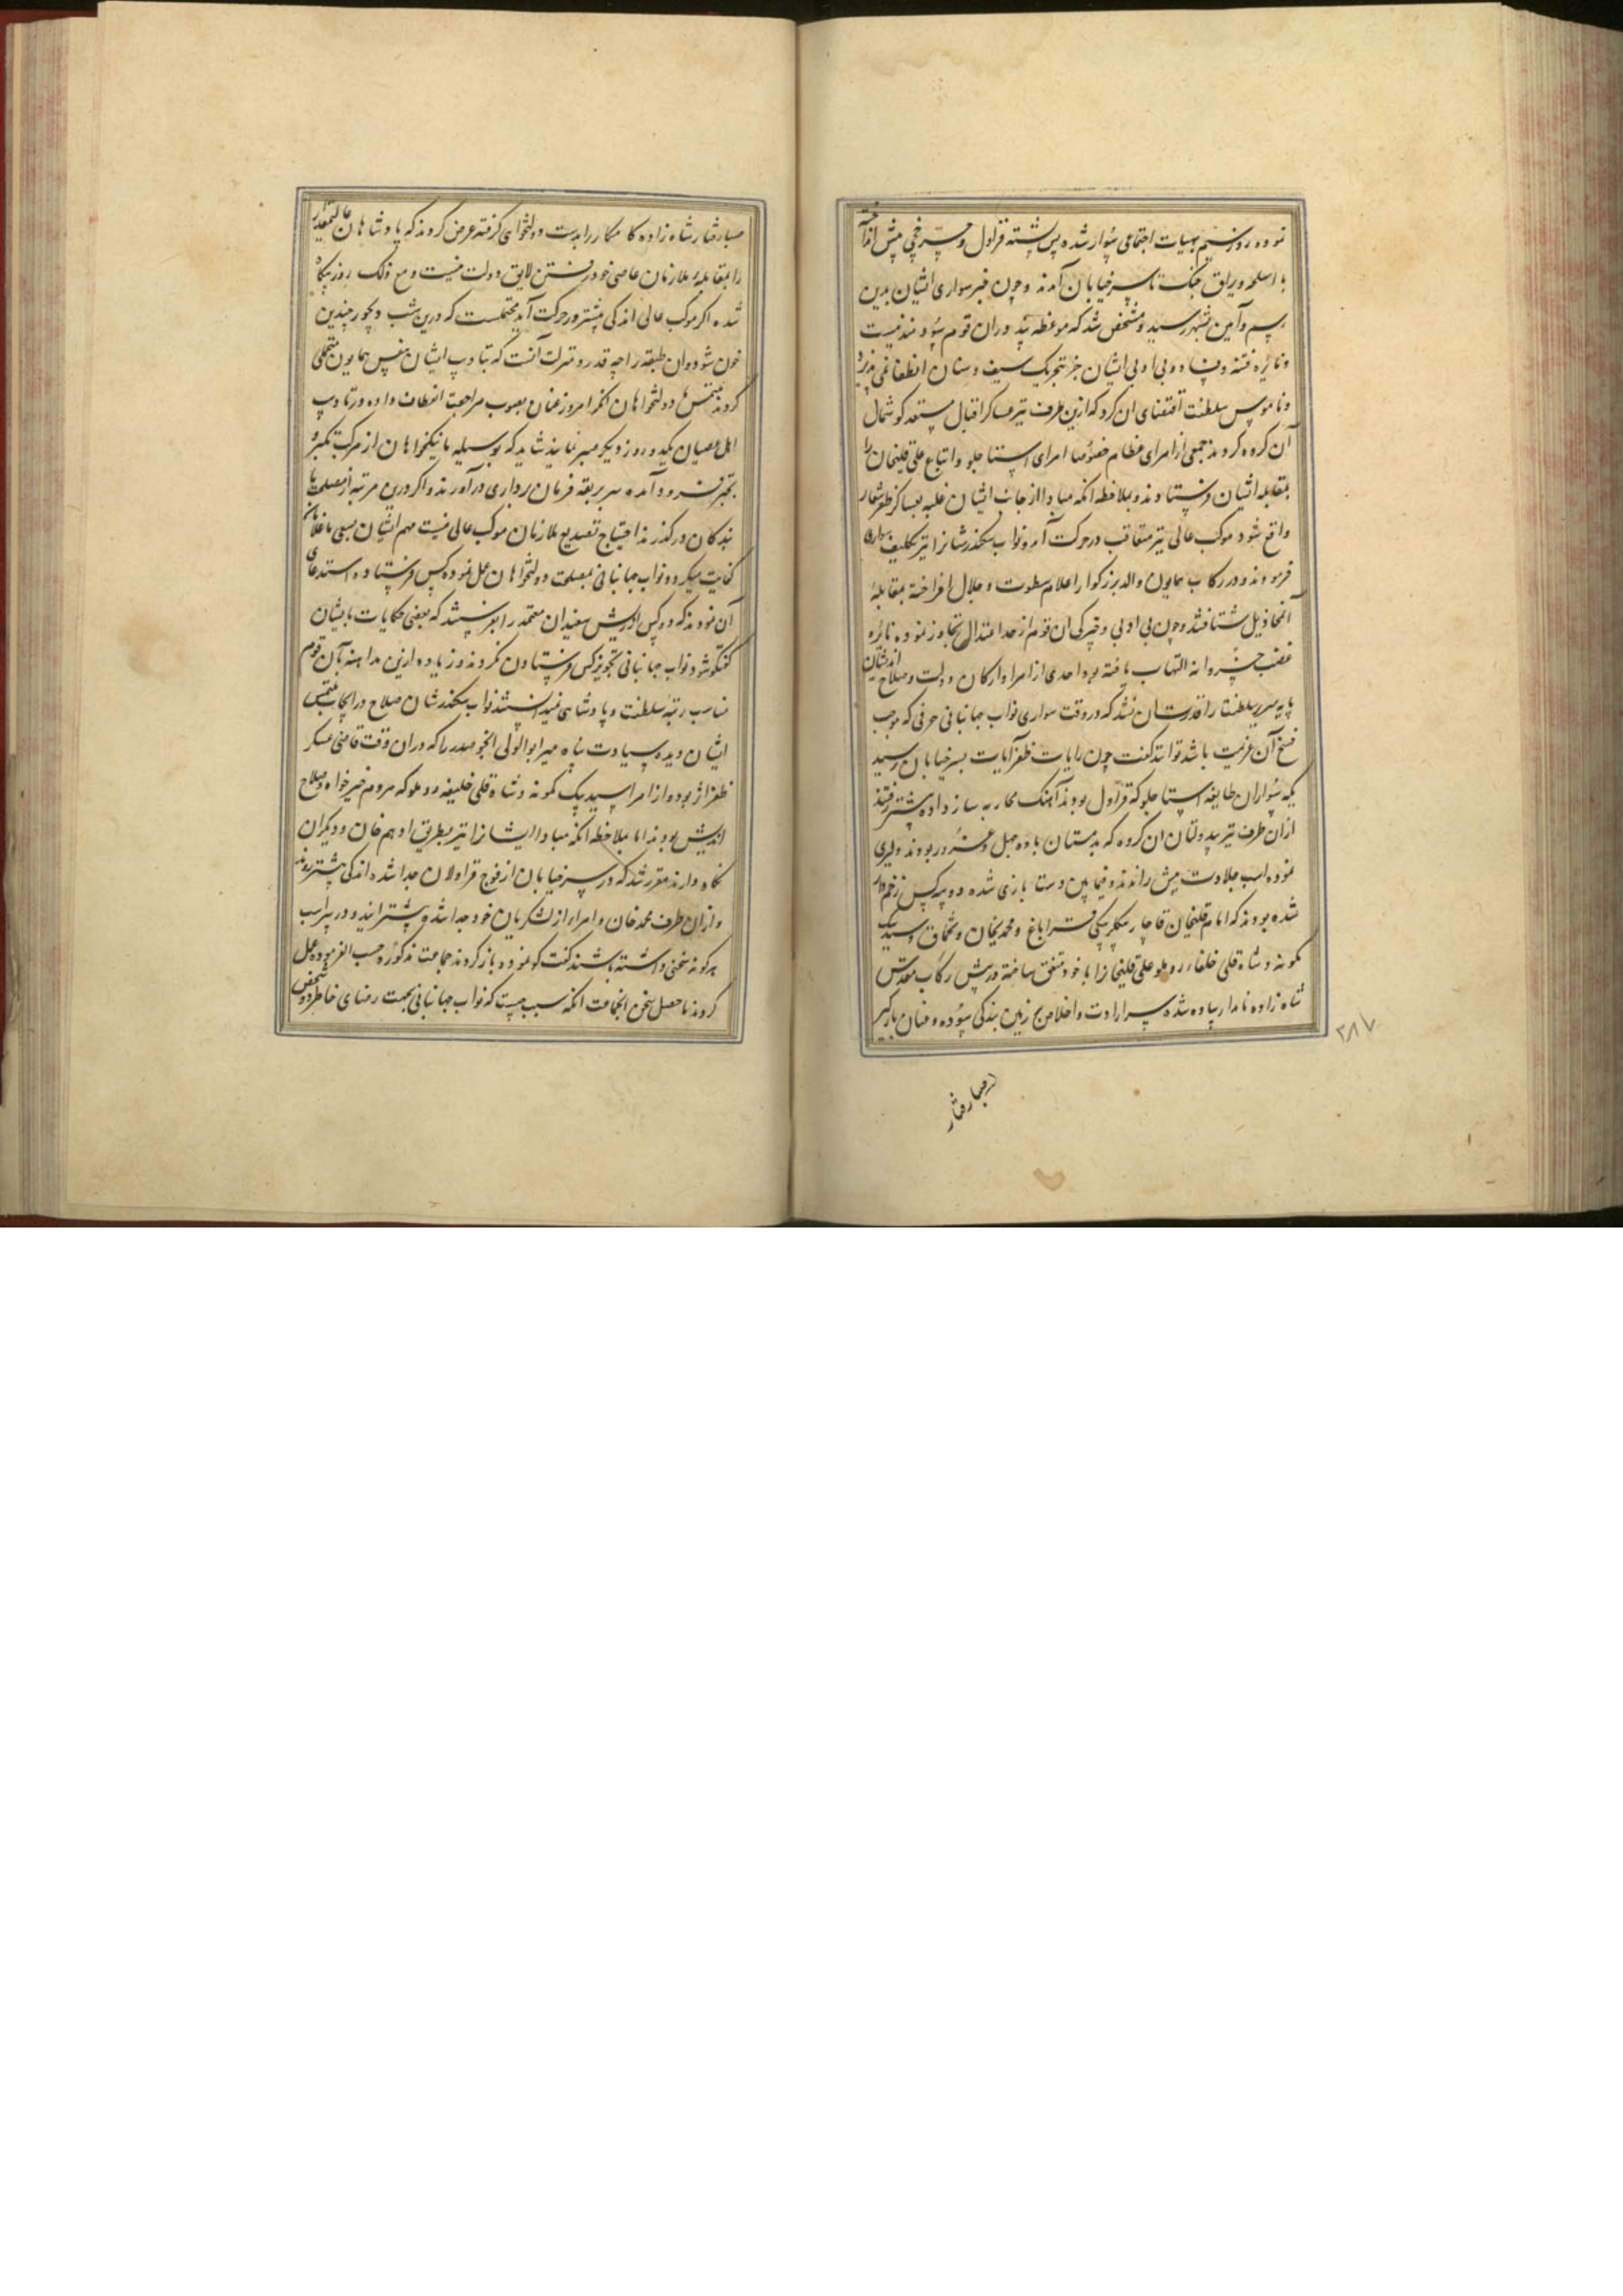 نموده روز سیم بهیات اجتماعی سوار شده پس پشته قراول و چرخچی پیش انداخته
با اسلحه و یراق جنک تا سر خیابان آمدند و چون خبر سواری ایشان بدین
رسم و آیین بشهر رسید و مشخص شد که موعظه و پند دران قوم سودمند نیست
و نایره فتنه و فساد و بی ادبی ایشان جز بتحریک سیف و سنان انطفا نمی پذیرد
و ناموس سلطنت اقتضای ان کرد که ازین طرف نیز عساکر اقبال مستعد کوشمال
آن کروه کردند جمعی از امرای عظام خصوصا امرای استاجلو و اتباع علی قلیخان را
بمقابله ایشان فرستادند و بملاحظه انکه مبادا از جانب ایشان غلبه بعساکر ظفر شعار
واقع شود موکب عالی نیز متعاقب در حرکت آمد و نواب سکندر شانرا نیز تکلیف سواری
فرمودند و در رکاب همایون والد بزرکوار اعلام سطوت و جلال افراخته بمقابله
آنمخاذیل شتافتند و چون بی ادبی و خیرکی ان قوم از حد اعتدال تجاوز نموده نایره
غضب خسروانه التهاب یافته بود احدی از امرا و ارکان دولت و صلاح اندیشان
پایه سریر سلطنت را قدرت ان نشد که در وقت سواری نواب جهانبانی حرفی که موجب
فسخ آن عزیمت باشد تواند کفت چون رایات ظفر آیات بسر خیابان رسید
یکه سواران طایفه استاجلو که قراول بودند آهنک محاربه ساز داده پیشتر رفتند
ازان طرف نیز بیدولتان ان کروه که بدمستان باده جهل و غرور بودند دلیری
نموده اسب جلادت پیش راندند و فیمابین دستبازی شده دو سه کس زخم‌دار
شده بودند که امام قلیخان قاجار بیکلربیکی قراباغ و محمدیخان و شخماق و سید بیک
کمونه و شاه قلی خلفاء روملو علی قلیخانرا با خود متفق ساخته در پیش رکاب مقدس
شاه زاده نامدار پیاده شده سر ارادت و اخلاص بر زمین بندکی سوده و عنان بارکیر
صبا رفتار
۲۸۷
صبا رفتار شاه زاده کامکار را بدست دولتخواهی کرفته عرض کردند که پادشاهان عالیمقدار
را بمقابله ملازمان عاصی خود رفتن لایق دولت نیست و مع ذلک روز بیکاه
شده اکر موکب عالی اندکی پیشتر در حرکت آید محتملست که درین شب دیجور چندین
خون شود و ان طبقه را چه قدر و منزلت آنست که بتادیب ایشان بنفس همایون متحمل
کردند ملتمس ما دولتخواهان انکه امروز عنان بصوب مراجعت انعطاف داده در تادیب
اهل عصیان یکدو روز دیکر صبر نمایند شاید که بوسیله ما نیکخواهان از مرکب تکبر و
تجبر فرود آمده سر بربقه فرمان برداری درآورند و اکر درین مرتبه از مصلحت ما
بندکان درکذرند احتیاج تصدیع ملازمان موکب عالی نیست مهم ایشان بسعی ما غلامان
کفایت میکردد نواب جهانبانی بمصلحت دولتخواهان عمل نموده کس فرستاده استدعای
آن نمودند که دو کس از ریش سفیدان معتمد را بفرستند که بعضی حکایات بایشان
کفتکو شود نواب جهانبانی تجویز کس فرستادن نکردند و زیاده ازین مداهنه بآن قوم
مناسب رتبه سلطنت و پادشاهی نمیدانستند نواب سکندرشان صلاح در انجاح ملتمس
ایشان دیده سیادت پناه میر ابوالولی انجو صدر را که دران وقت قاضی عسکر
ظفر اثر بود و از امرا سید بیک کمونه و شاه قلی خلیفه روملو که مردم خیرخواه و صلاح
اندیش بودند اما بملاحظه انکه مبادا ایشانرا نیز بطریق ادهم خان و دیکران
نکاه دارند مقرر شد که در سر خیابان از فوج قراولان جدا شده اندکی پیشتر روند
و ازان طرف محمد خان و امراء از لشکریان خود جدا شده پیشتر آیند و در سر اسب
هر کونه سخنی داشته باشند کفت کو نموده باز کردند جماعت مذکوره حسب الفرموده عمل
کردند ما حصل سخن انجماعت انکه سبب چیست که نواب جهانبانی بجهت رضای خاطر دو شخص